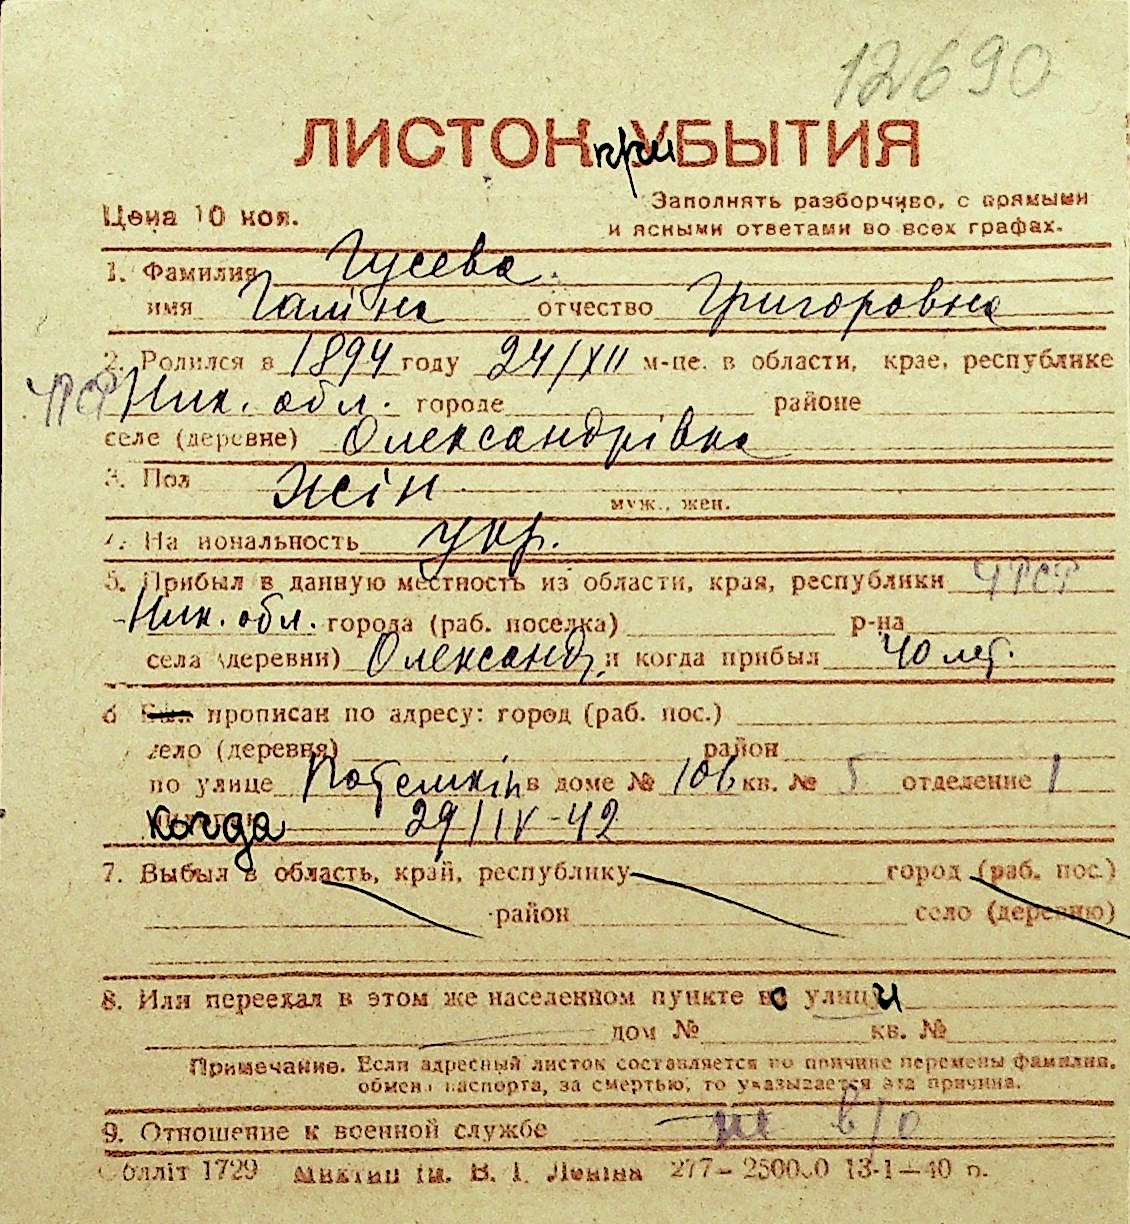 12690
ЛИСТОК при УБЫТИЯ
Цена 10 коп.
Заполнять разборчиво, с прямыми
и ясными ответами во всех графах.
1. Фамилия Гусева
имя Галіна отчество Григоровна
2. Родился в 1894 году 24/XII м-це. в области, крае, республике
УРСР Ник. обл. городе районе
селе (деревне) Олександрівка
3. Пол жін. муж., жен.
4. На иональность укр.
5. Прибыл в данную местность из области, края, республики УРСР
Ник. обл. города (раб. поселка) р-на
села (деревни) Олександ. и когда прибыл 40 лет.
6 Был прописан по адресу: город (раб. пос.)
село (деревня) район
по улице Потемкін в доме № 106 кв. № 5 отделение 1
когда 29/IV-42
7. Выбыл в область, край, республику город (раб. пос.)
район село (деревню)
8. Или переехал в этом же населенном пункте с улици
дом № кв. №
Примечание. Если адресный листок составляется по причине перемены фамилии,
обмена паспорта, за смертью, то указывается эта причина.
9. Отношение к военной службе не в/о
Облліт 1729 ім. В. І. Леніна 277-25000 13-1-40 р.